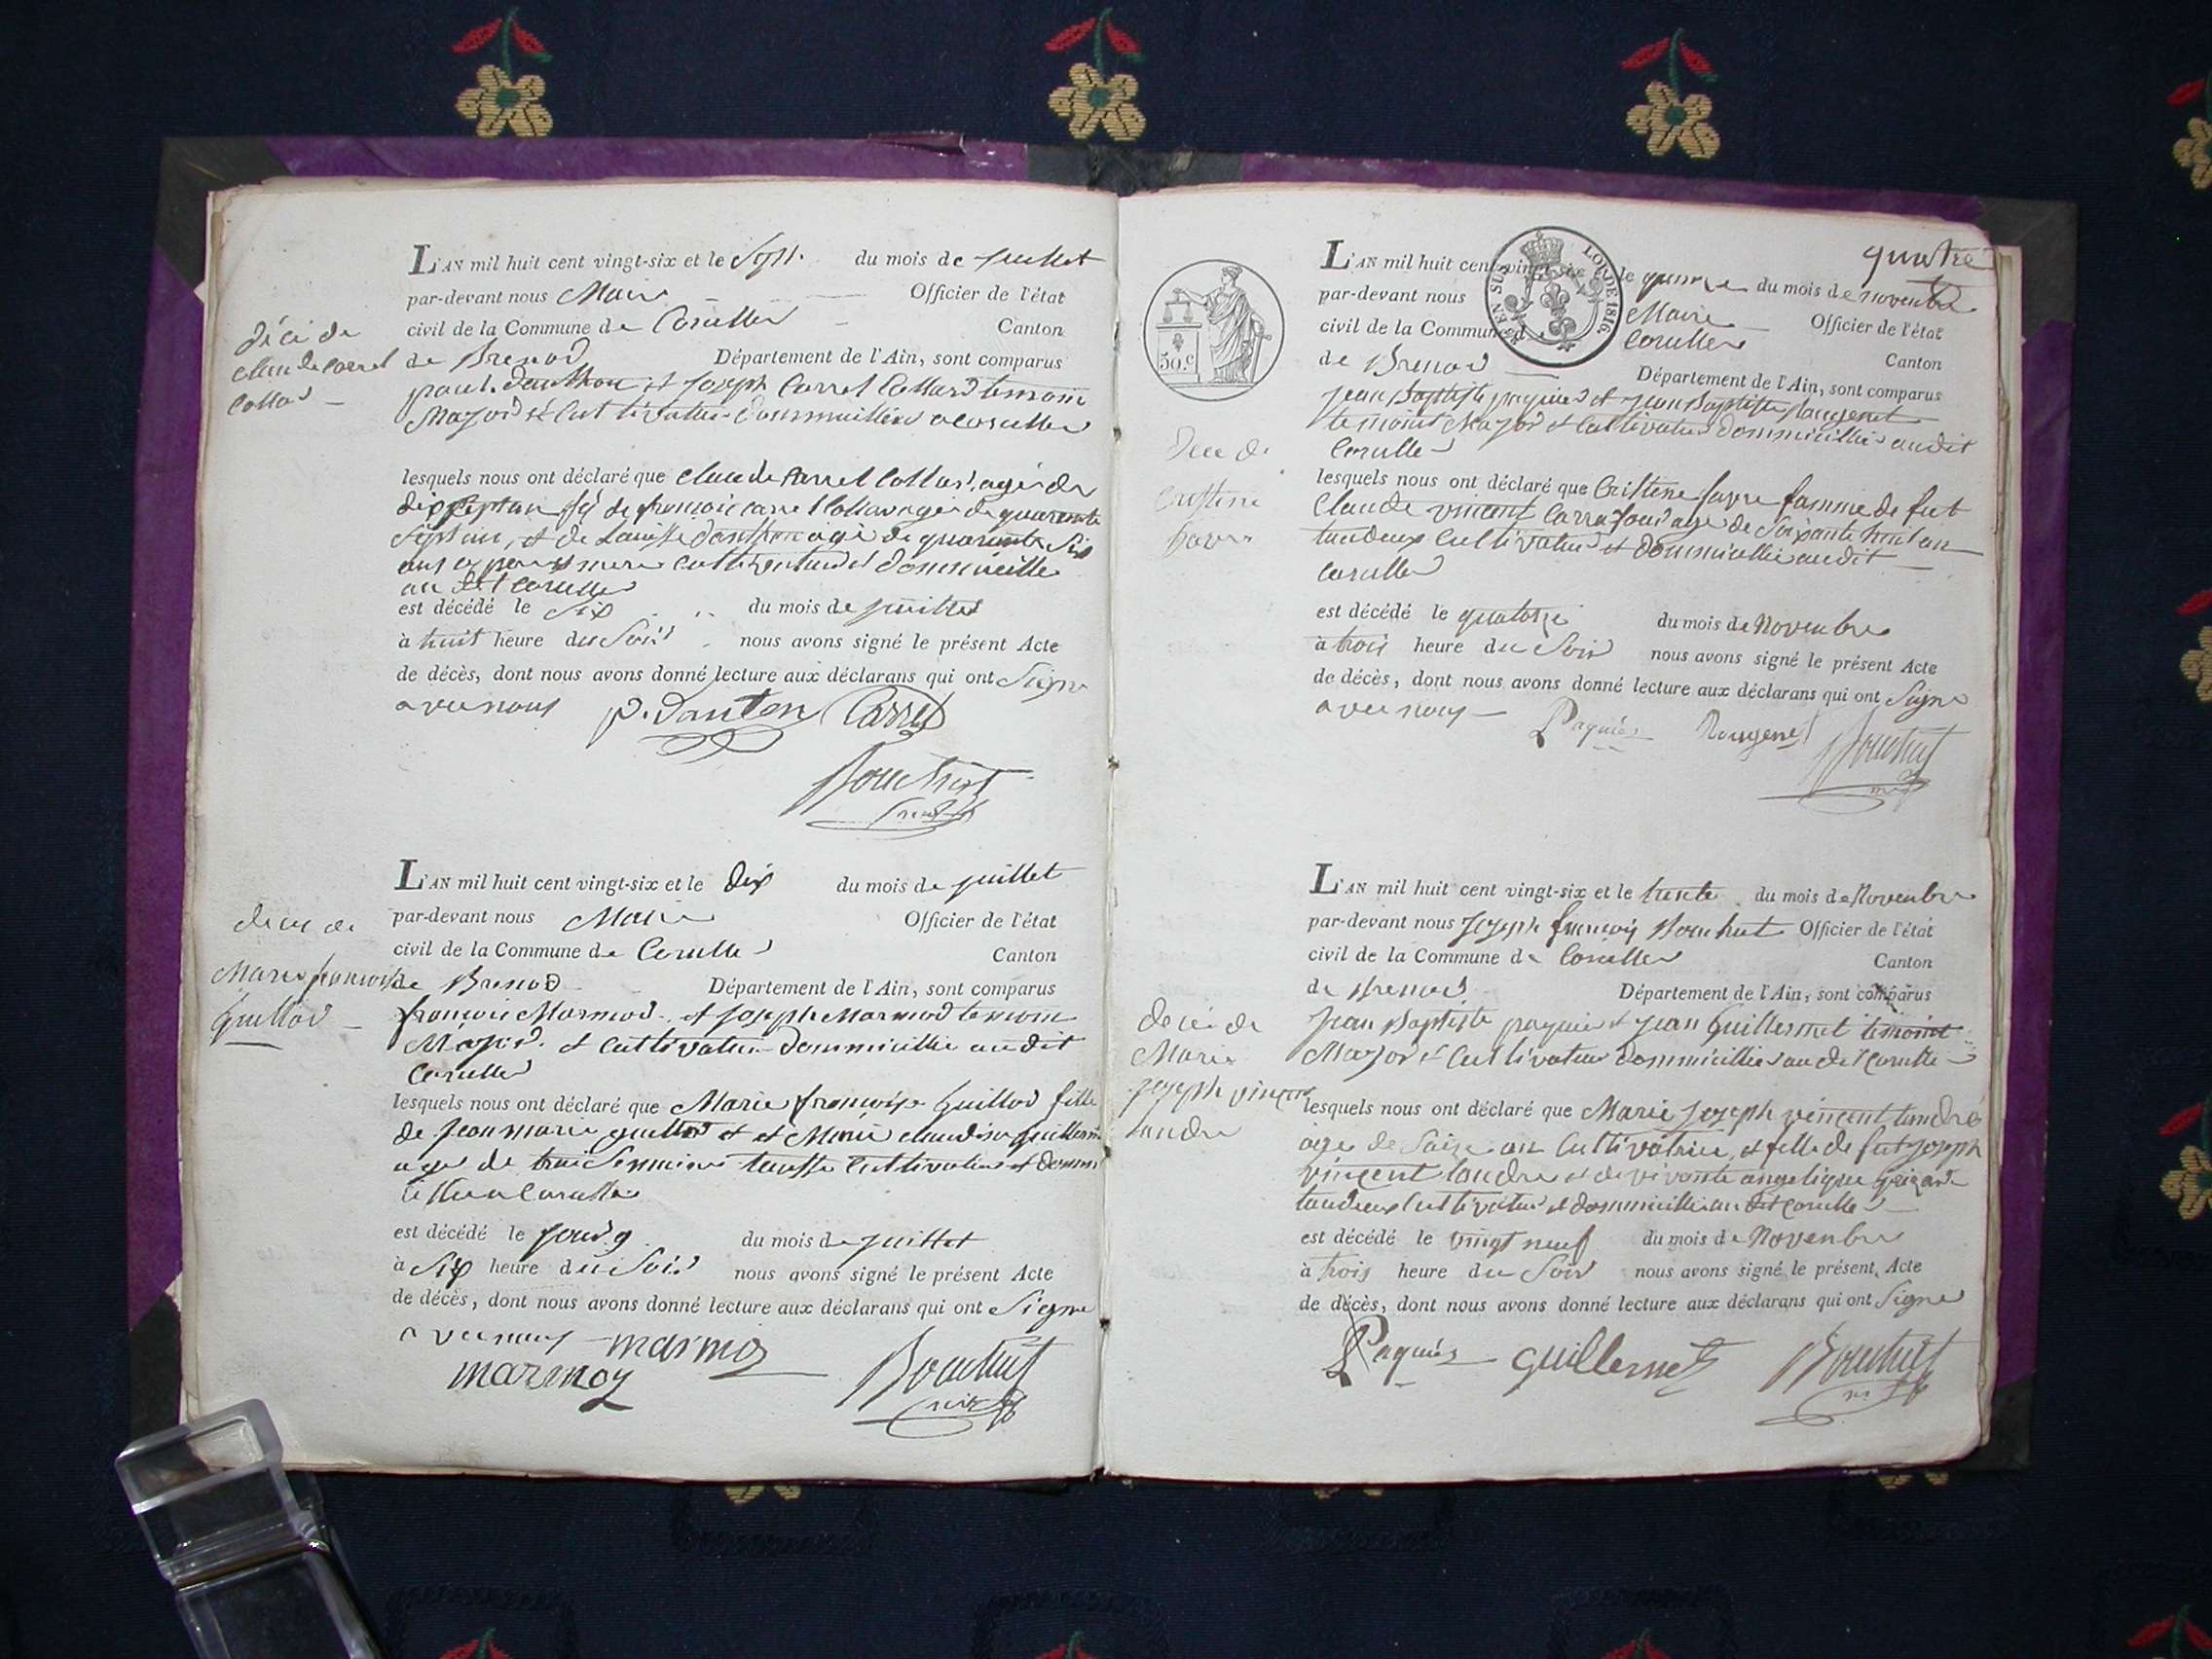 décé de
Claude Carrel
Collas
L'AN mil huit cent vingt-six et le Sept. du mois de juillet
par-devant nous Maire Officier de l'état
civil de la Commune de Corcelles Canton
de Brenod Département de l'Ain, sont comparus
paul. danthon et Joseph Carrel Collard temoin
Major et Cultivateur dommicilliés a Corcelles
lesquels nous ont déclaré que Claude Carrel Collas, agé de
dix Sept an fis de francois Carrel agé de quarente
Sept an, et de danthon agé de quarente Six
ans et mere Cultivateurs dommicillé
au dit Corcelles
est décédé le Six du mois de juillet
à huit heure du Soir nous avons signé le présent Acte
de décès, dont nous avons donné lecture aux déclarans qui ont Signé
avec nous p. danton Carrel
Bouchut
maire
deces de
Marie francoise
Guillod
L'AN mil huit cent vingt-six et le dix du mois de juillet
par-devant nous Maire Officier de l'état
civil de la Commune de Corcelles Canton
de Brenod Département de l'Ain, sont comparus
francois Marmod et Joseph Marmod temoin
Major et Cultivateur dommicillié au dit
Corcelles
lesquels nous ont déclaré que Marie francoise Guillod fille
de Jean marie guillod et et Marie claudine Guillermet
agé de trois Semaine Cultivateur et
a Corcelles
est décédé le jour 9 du mois de juillet
à Six heure du Soir nous avons signé le présent Acte
de décès, dont nous avons donné lecture aux déclarans qui ont Signe
avec nous marmoz
marmoz Bouchut
maire
quatre
50.c
EN SUS LOI DE 1816.
L'AN mil huit cent vingt-six et le quinze du mois de novembre
par-devant nous Maire Officier de l'état
civil de la Commune de Corcelles Canton
de Brenod Département de l'Ain, sont comparus
jean Baptiste paquies et jean Baptiste Rougenet
temoins Major et Cultivateur dommicilliés audit
Corcelles
dece de
Cristine
favre
lesquels nous ont déclaré que Cristine favre famme de fut
Claude vincent agé de Soixante huit an
Cultivateur et dommicillié audit
Corcelles
est décédé le quatorze du mois de Novembre
à trois heure du Soir nous avons signé le présent Acte
de décès, dont nous avons donné lecture aux déclarans qui ont Signé
avec nous Paquiés Rougenet Bouchut
L'AN mil huit cent vingt-six et le trente du mois de Novembre
par-devant nous Joseph françois Bouchut Officier de l'état
civil de la Commune de Corcelles Canton
de Brenod Département de l'Ain, sont comparus
Jean Baptiste paquies et Jean Guillermet temoint
Major et Cultivateur dommicilliés au dit Corcelles
décé de
Marie
Joseph vincent
tandre
lesquels nous ont déclaré que Marie Joseph vincent tandré
agé de Saize an Cultivatrice, et fille de fut Joseph
vincent tandre et de vivante angelique
Cultivateur et dommicillié au dit Corcelles
est décédé le vingt neuf du mois de Novembre
à trois heure du Soir nous avons signé le présent Acte
de décès, dont nous avons donné lecture aux déclarans qui ont Signé
Paquiés guillermet Bouchut